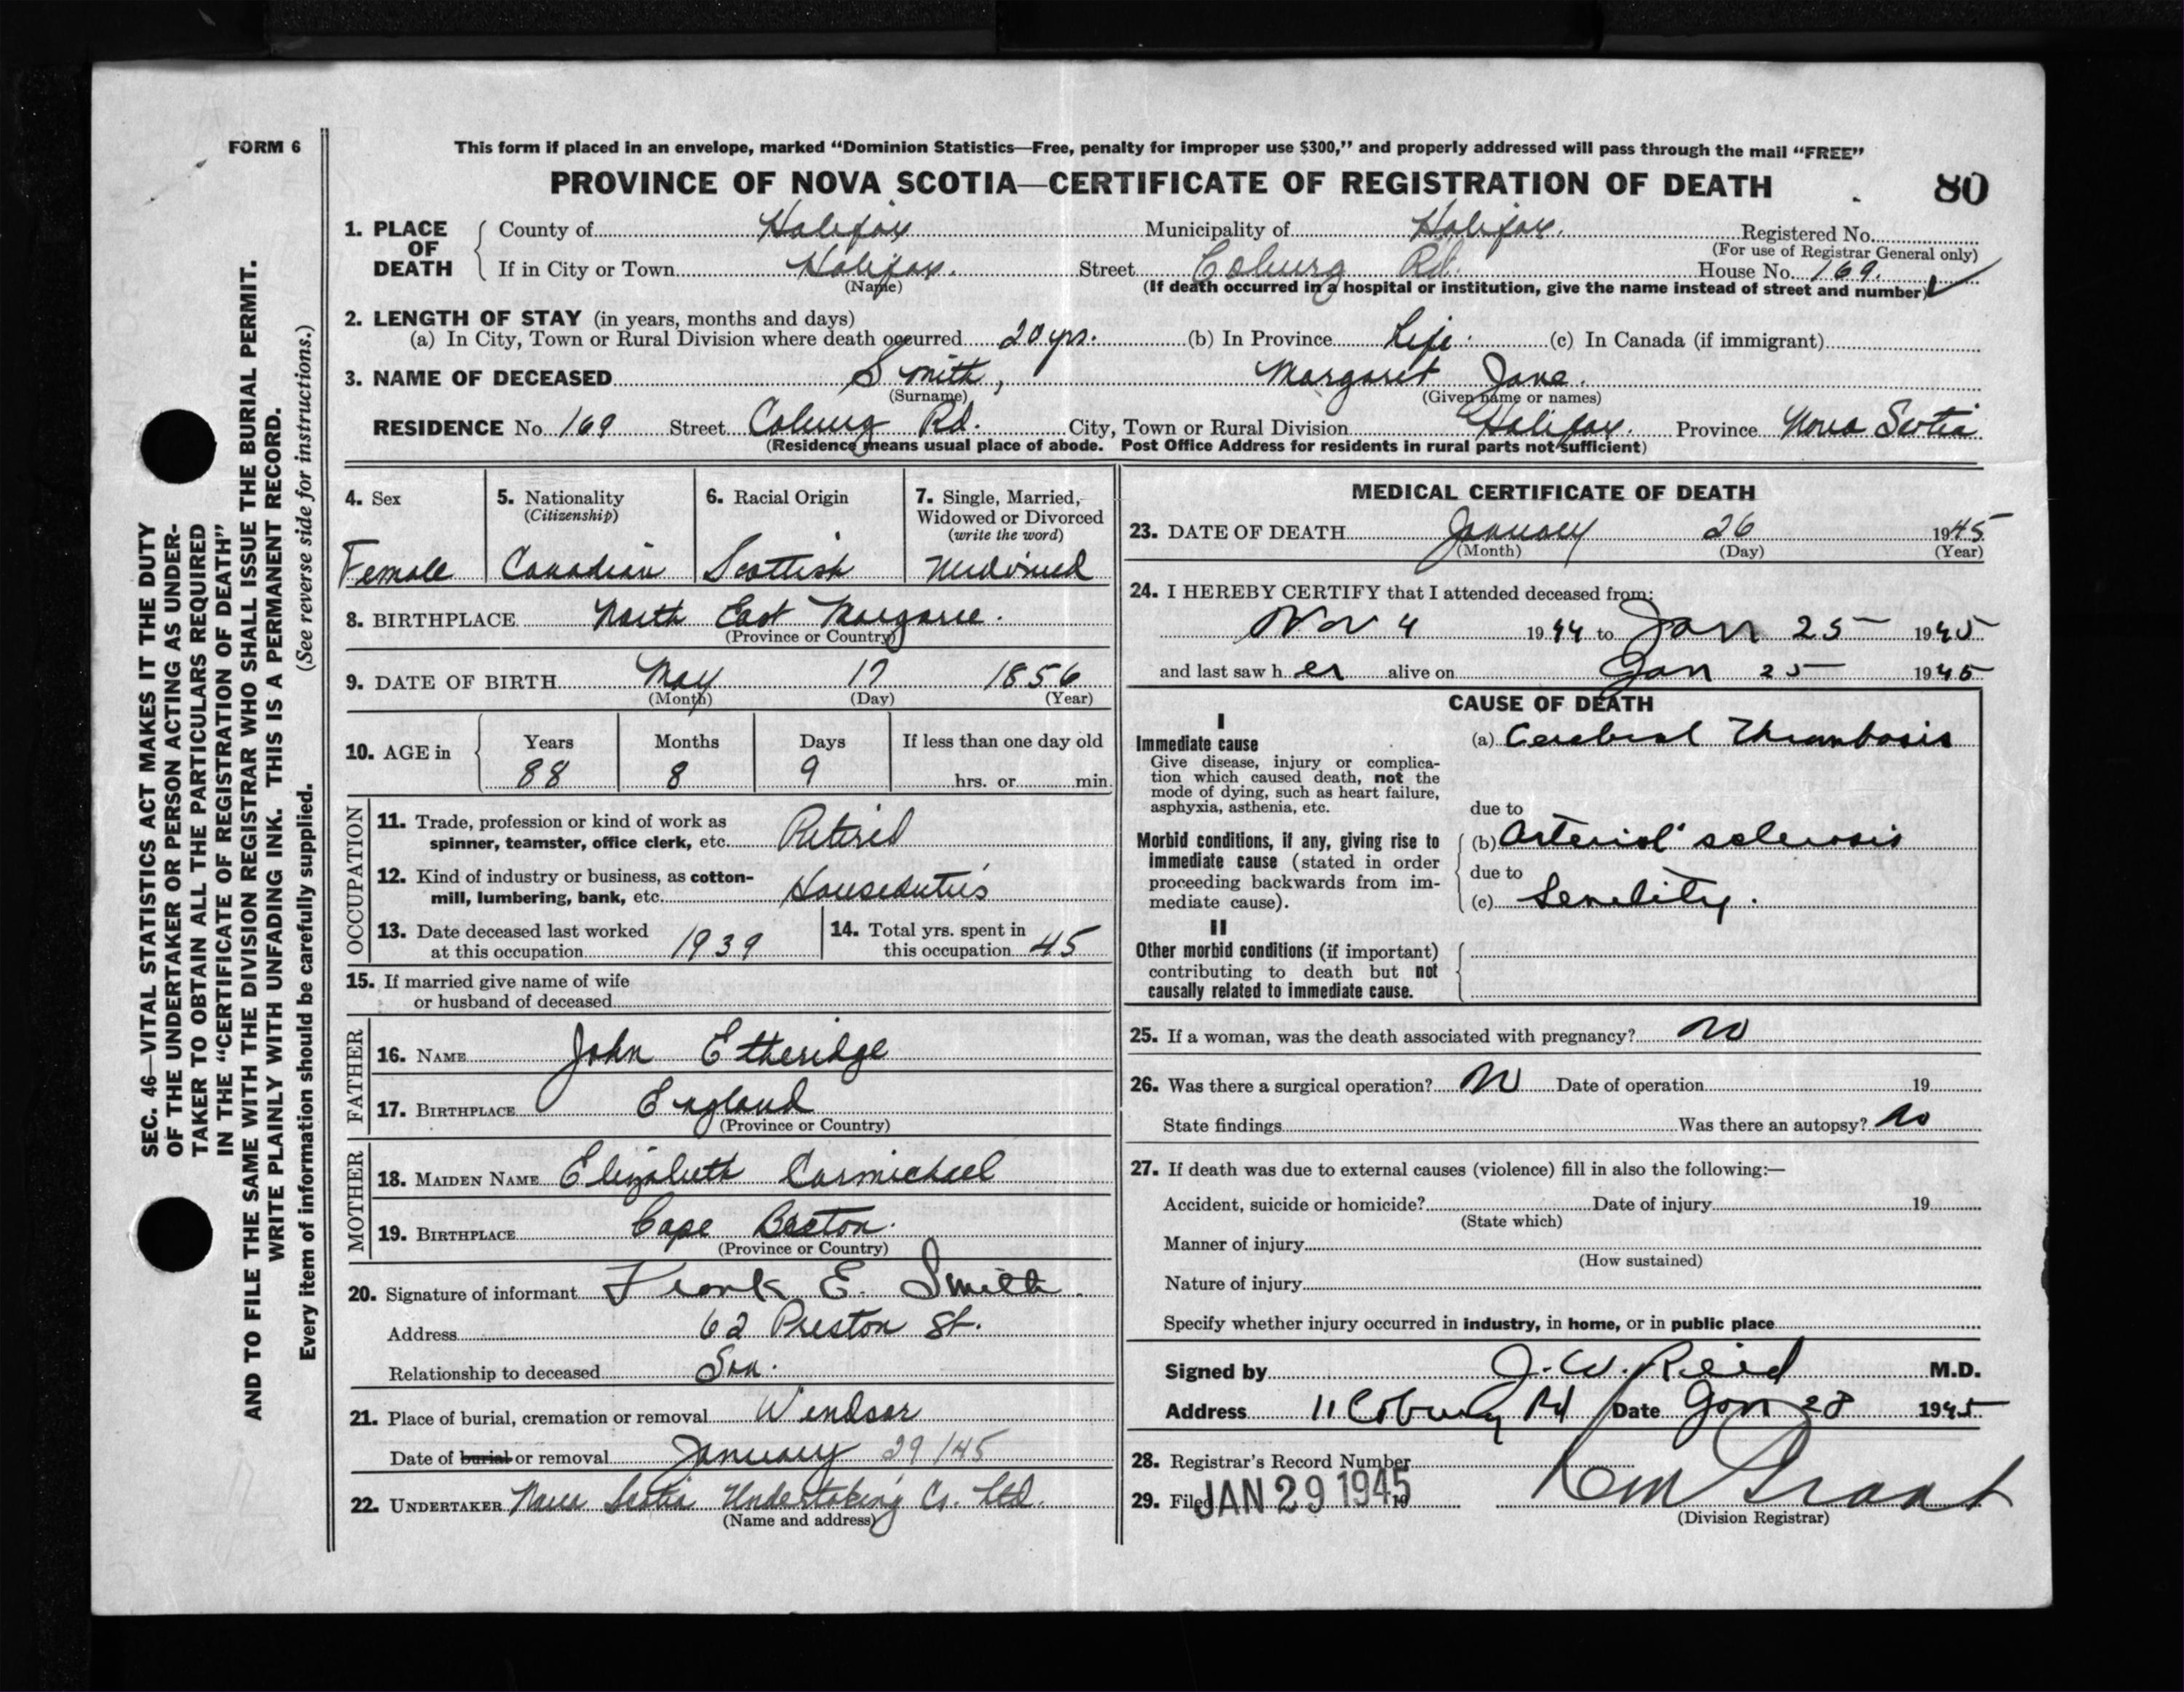 FORM 6
This form if placed in an envelope, marked "Dominion Statistics—Free, penalty for improper use $300," and properly addressed will pass through the mail "FREE"
PROVINCE OF NOVA SCOTIA—CERTIFICATE OF REGISTRATION OF DEATH
80
SEC. 46—VITAL STATISTICS ACT MAKES IT THE DUTY
OF THE UNDERTAKER OR PERSON ACTING AS UNDER-
TAKER TO OBTAIN ALL THE PARTICULARS REQUIRED
IN THE "CERTIFICATE OF REGISTRATION OF DEATH"
AND TO FILE THE SAME WITH THE DIVISION REGISTRAR WHO SHALL ISSUE THE BURIAL PERMIT.
WRITE PLAINLY WITH UNFADING INK. THIS IS A PERMANENT RECORD.
Every item of information should be carefully supplied. (See reverse side for instructions.)
1. PLACE OF DEATH
County of Halifax Municipality of Halifax. Registered No.
(For use of Registrar General only)
If in City or Town Halifax. Street Coburg Rd. House No. 169.
(Name) (If death occurred in a hospital or institution, give the name instead of street and number)
2. LENGTH OF STAY (in years, months and days)
(a) In City, Town or Rural Division where death occurred 20 yrs. (b) In Province Life. (c) In Canada (if immigrant)
3. NAME OF DECEASED Smith, Margaret Jane.
(Surname) (Given name or names)
RESIDENCE No. 169 Street Coburg Rd. City, Town or Rural Division Halifax. Province Nova Scotia
(Residence means usual place of abode. Post Office Address for residents in rural parts not sufficient)
4. Sex
Female
5. Nationality
(Citizenship)
Canadian
6. Racial Origin
Scottish
7. Single, Married,
Widowed or Divorced
(write the word)
Widowed
8. BIRTHPLACE North East Margaree.
(Province or Country)
9. DATE OF BIRTH May 17 1856
(Month) (Day) (Year)
10. AGE in
Years Months Days If less than one day old
88 8 9 hrs. or min.
OCCUPATION
11. Trade, profession or kind of work as
spinner, teamster, office clerk, etc. Retired
12. Kind of industry or business, as cotton-
mill, lumbering, bank, etc. Houseduties
13. Date deceased last worked
at this occupation 1939
14. Total yrs. spent in
this occupation 45
15. If married give name of wife
or husband of deceased
FATHER
16. NAME John Etheridge
17. BIRTHPLACE England
(Province or Country)
MOTHER
18. MAIDEN NAME Elizabeth Carmichael
19. BIRTHPLACE Cape Breton.
(Province or Country)
20. Signature of informant Frank E. Smith.
Address 62 Preston St.
Relationship to deceased Son.
21. Place of burial, cremation or removal Windsor
Date of burial or removal January 29/45
22. UNDERTAKER Nova Scotia Undertaking Co. Ltd.
(Name and address)
MEDICAL CERTIFICATE OF DEATH
23. DATE OF DEATH January 26 1945
(Month) (Day) (Year)
24. I HEREBY CERTIFY that I attended deceased from:
Nov 4 1944 to Jan 25 1945
and last saw her alive on Jan 25 1945
CAUSE OF DEATH
I
Immediate cause
Give disease, injury or complica-
tion which caused death, not the
mode of dying, such as heart failure,
asphyxia, asthenia, etc.
(a) Cerebral Thrombosis
due to
Morbid conditions, if any, giving rise to
immediate cause (stated in order
proceeding backwards from im-
mediate cause).
(b) Arterial sclerosis
due to
(c) Senility.
II
Other morbid conditions (if important)
contributing to death but not
causally related to immediate cause.
25. If a woman, was the death associated with pregnancy? no
26. Was there a surgical operation? no Date of operation 19
State findings Was there an autopsy? no
27. If death was due to external causes (violence) fill in also the following:—
Accident, suicide or homicide? Date of injury 19
(State which)
Manner of injury
(How sustained)
Nature of injury
Specify whether injury occurred in industry, in home, or in public place
Signed by J. W. Reid M.D.
Address 11 Coburg Rd Date Jan 28 1945
28. Registrar's Record Number
29. Filed JAN 29 1945 19
Grant
(Division Registrar)